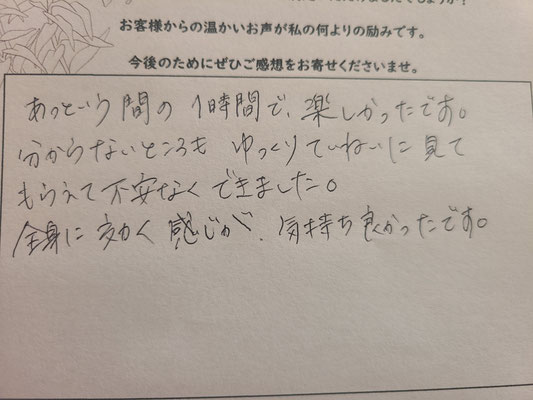 お客様からの温かいお声が私の何よりの励みです。
今後のためにぜひご感想をお寄せくださいませ。
あっという間の1時間で、楽しかったです。
分からないところも ゆっくりていねいに見て
もらえて不安なくできました。
全身に効く感じが、気持ち良かったです。